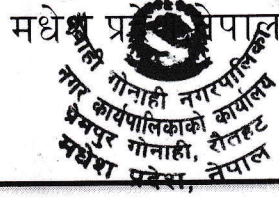 मधेश प्रदेश, नेपाल
गोनाही नगरपालिका
नगर कार्यपालिकाको कार्यालय
प्रेमपुर गोनाही, रौतहट
मधेश प्रदेश, नेपाल